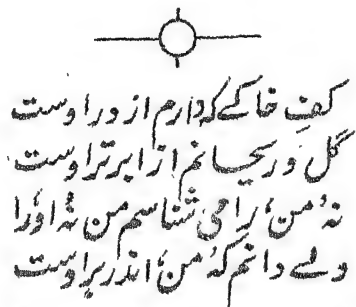 کفِ خاکے کہ دارم از درِ اوست
گل و ریحانم از ابرِ ترِ اوست
نہ ’من‘ را می شناسم من نہ ’او‘ را
ولے دانم کہ ’من‘ اندر برِ اوست